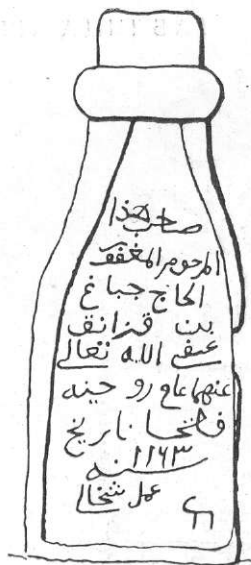 صاحب هذا
المرحوم المغفور
الحاج جباغ
بن قزانق
عفى الله تعالى
عنهما
فاتحا تاريخ
١١٦٣
سنه
عمل شخالى